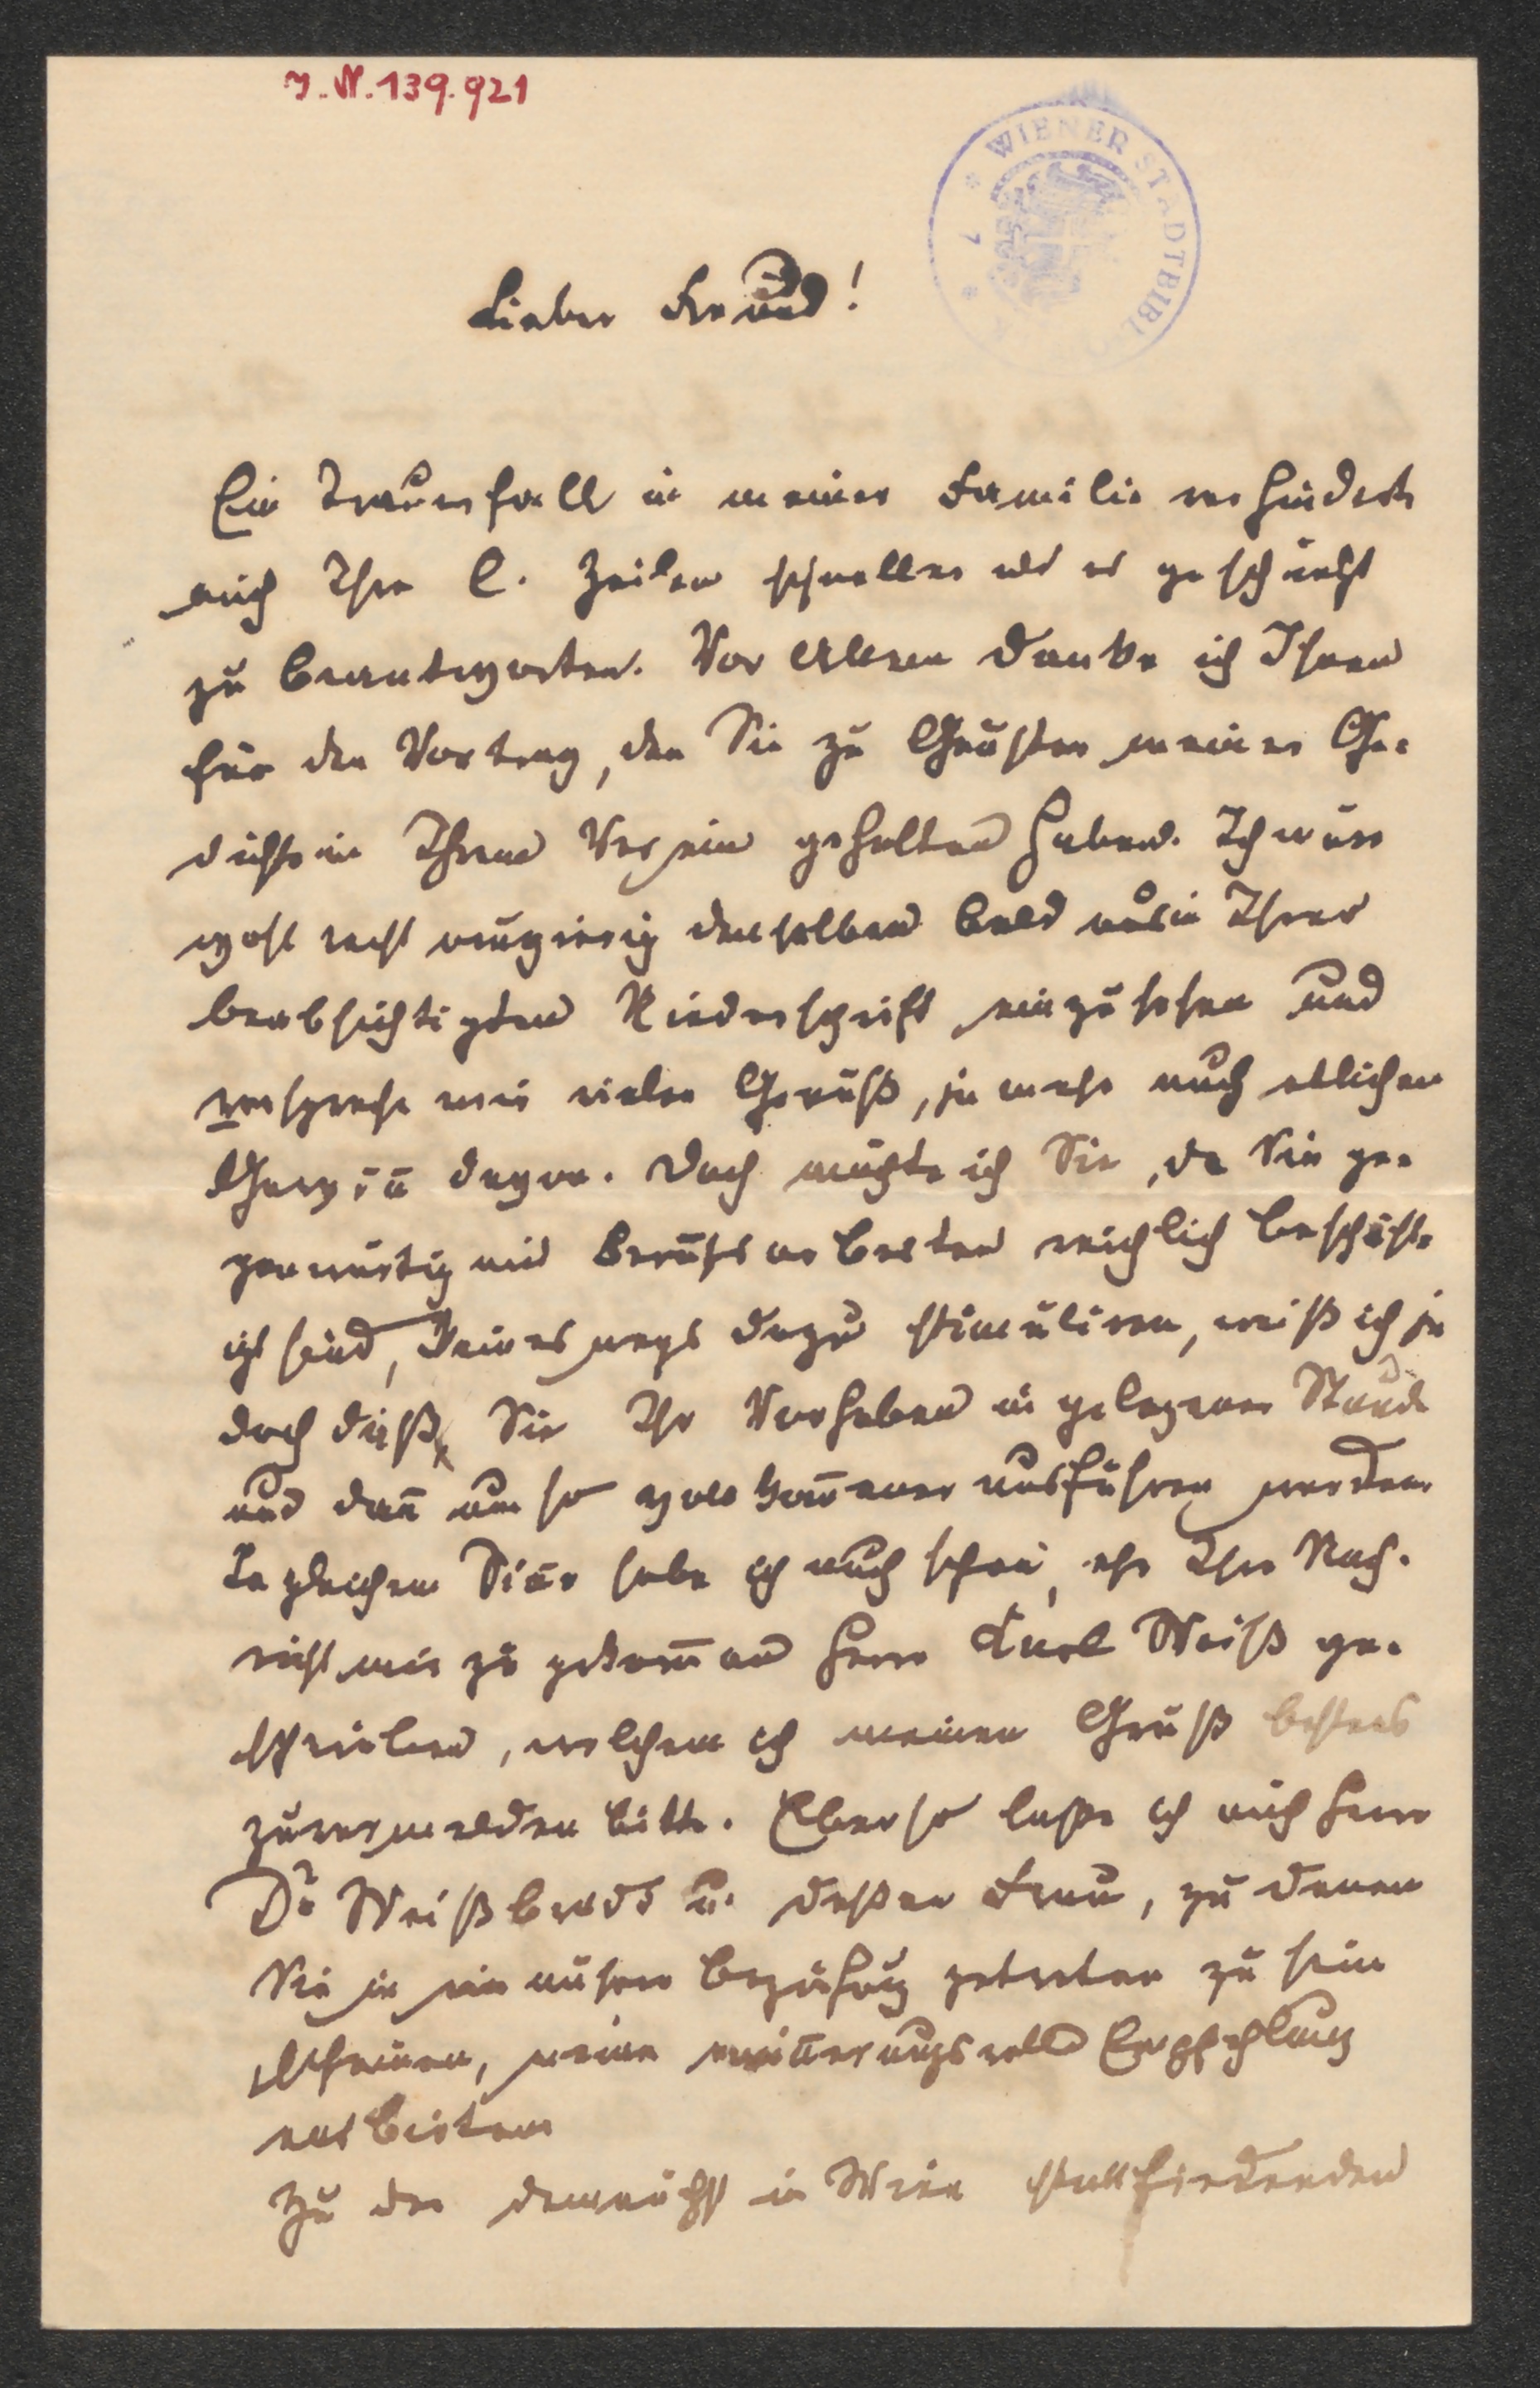 I.N. 139.921
WIENER STADTBIBL
Lieber Freund!
Ein Trauerfall in meiner Familie verhinderte
mich Ihre l. Zeilen schneller als es geschieht
zu beantworten. Vor Allem danke ich Ihnen
für den Vortrag, den Sie zu Gunsten meiner Ge-
dichte in Ihrem Verein gehalten haben. Ich wäre
wohl recht neugierig denselben bald aus Ihrer
beabsichtigten Niederschrift einzusehen und
verspreche mir vielen Genuß, ja mehr auch etlichen
Gewinn davon. Doch möchte ich Sie, da Sie ge-
genwärtig mit Berufsarbeiten reichlich beschäft-
igt sind, keineswegs dazu stimuliren, weiß ich ja
doch daß Sie Ihr Vorhaben in gelegener Stunde
und dann um so vollkommener ausführen werden.
In gleichem Sinne habe ich auch schon, ehe Ihre Nach-
richt mir zu gekommen Herrn Karl Weiß ge-
schrieben, welchem ich meinen Gruß bestens
zu vermelden bitte. Ebenso laße ich mich Herrn
Dr Weißbrodt u. deßen Frau, zu denen
Sie in eine nähere Beziehung getreten zu sein
scheinen, meine erinnerungsvolle Empfehlung
entbieten
Zu der demnächst in Wien stattfindenden